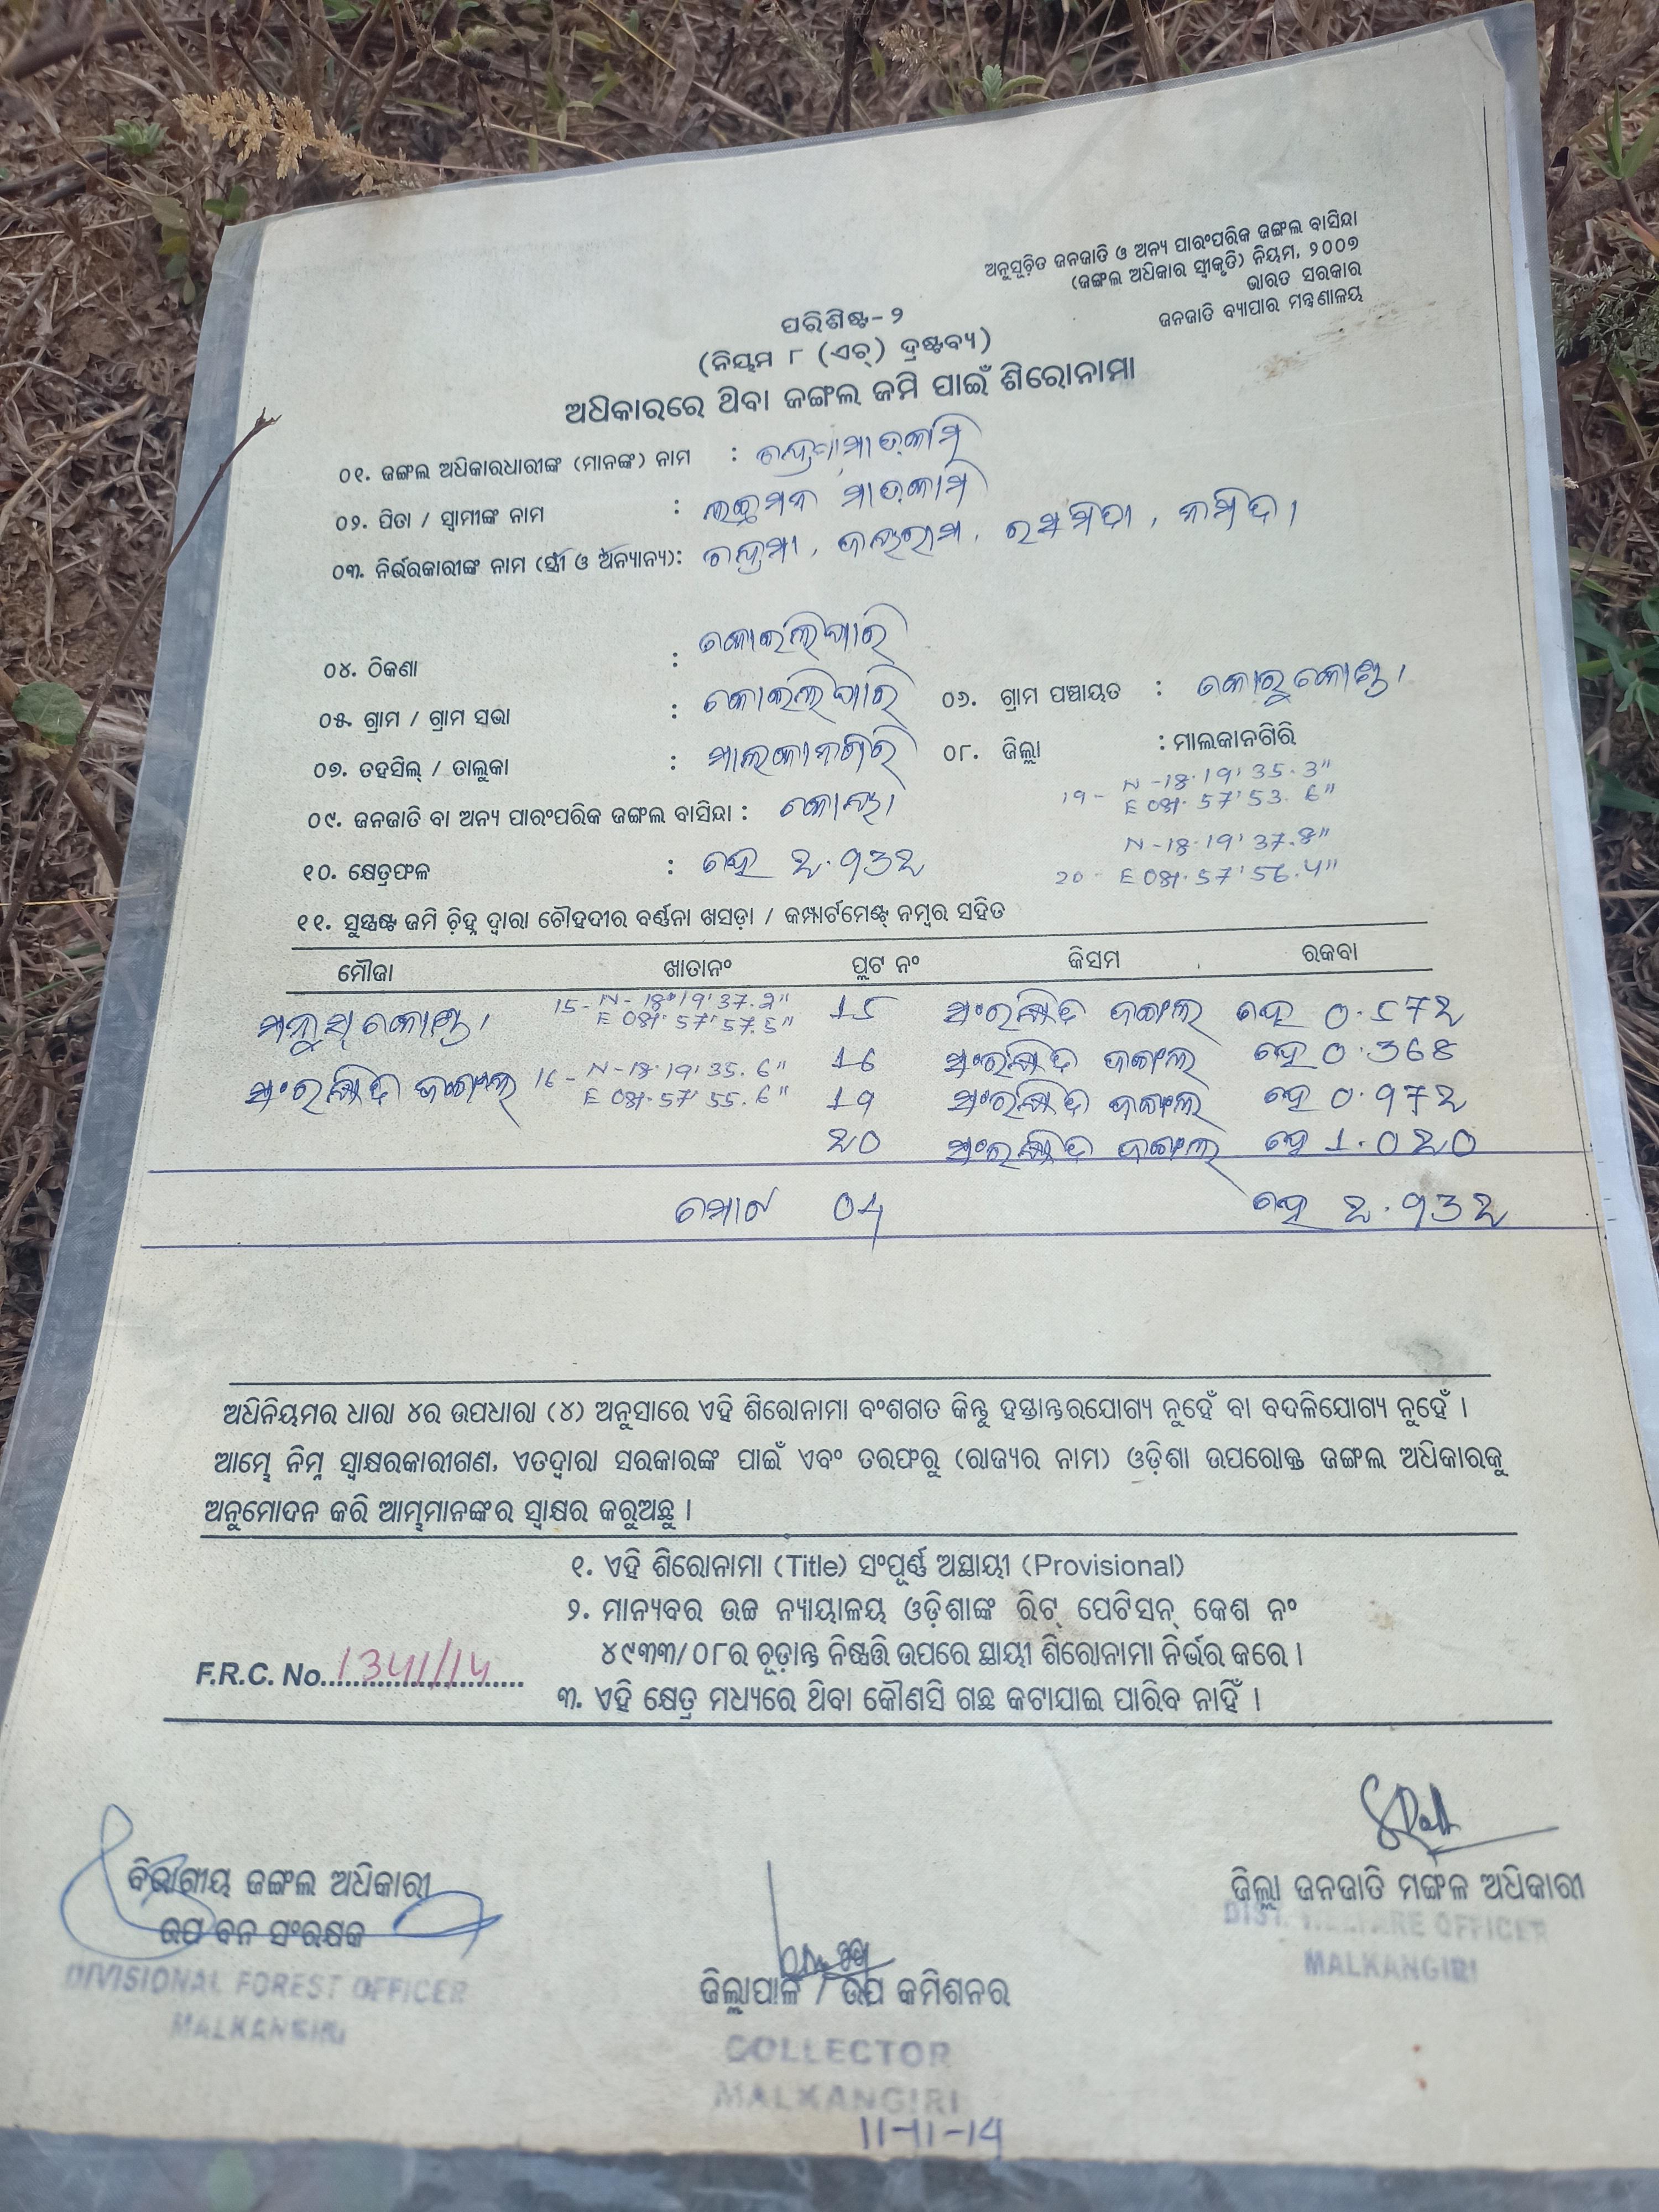 ଅନୁସୂଚିତ ଜନଜାତି ଓ ଅନ୍ୟ ପାରଂପରିକ ଜଙ୍ଗଲ ବାସିନ୍ଦା
(ଜଙ୍ଗଲ ଅଧିକାର ସ୍ୱୀକୃତି) ନିୟମ, ୨୦୦୭
ଭାରତ ସରକାର
ଜନଜାତି ବ୍ୟାପାର ମନ୍ତ୍ରଣାଳୟ
ପରିଶିଷ୍ଟ-୨
(ନିୟମ ୮ (ଏଚ୍) ଦ୍ରଷ୍ଟବ୍ୟ)
ଅଧିକାରରେ ଥିବା ଜଙ୍ଗଲ ଜମି ପାଇଁ ଶିରୋନାମା
୦୧. ଜଙ୍ଗଲ ଅଧିକାରଧାରୀଙ୍କ (ମାନଙ୍କ) ନାମ :
୦୨. ପିତା / ସ୍ୱାମୀଙ୍କ ନାମ : ମାଡ଼କାମି
୦୩. ନିର୍ଭରକାରୀଙ୍କ ନାମ (ସ୍ତ୍ରୀ ଓ ଅନ୍ୟାନ୍ୟ):
୦୪. ଠିକଣା :
୦୫. ଗ୍ରାମ / ଗ୍ରାମ ସଭା : ୦୬. ଗ୍ରାମ ପଞ୍ଚାୟତ : କୋରୁକୋଣ୍ଡା
୦୭. ତହସିଲ୍ / ତାଲୁକା : ମାଲକାନଗିରି ୦୮. ଜିଲ୍ଲା : ମାଲକାନଗିରି
19 - N-18·19'35.3"
E 081·57'53.6"
୦୯. ଜନଜାତି ବା ଅନ୍ୟ ପାରଂପରିକ ଜଙ୍ଗଲ ବାସିନ୍ଦା : କୋୟା
N-18·19'37.8"
20 - E 081·57'56.4"
୧୦. କ୍ଷେତ୍ରଫଳ : ହେ 2.932
୧୧. ସୁସ୍ପଷ୍ଟ ଜମି ଚ଼ିହ୍ନ ଦ୍ୱାରା ଚୌହଦୀର ବର୍ଣ୍ଣନା ଖସଡ଼ା / କମ୍ପାର୍ଟମେଣ୍ଟ୍ ନମ୍ବର ସହିତ
ମୌଜା ଖାତାନଂ ପ୍ଲଟ ନଂ କିସମ ରକବା
15 - N-18°19'37.2"
E 081·57'57.5" 15 ସଂରକ୍ଷିତ ଜଙ୍ଗଲ ହେ 0.572
16 - N-18·19'35.6" 16 ସଂରକ୍ଷିତ ଜଙ୍ଗଲ ହେ 0.368
ସଂରକ୍ଷିତ ଜଙ୍ଗଲ E 081·57'55.6" 19 ସଂରକ୍ଷିତ ଜଙ୍ଗଲ ହେ 0.972
20 ସଂରକ୍ଷିତ ଜଙ୍ଗଲ ହେ 1.020
ମୋଟ 04 ହେ 2.932
ଅଧିନିୟମର ଧାରା ୪ର ଉପଧାରା (୪) ଅନୁସାରେ ଏହି ଶିରୋନାମା ବଂଶଗତ କିନ୍ତୁ ହସ୍ତାନ୍ତରଯୋଗ୍ୟ ନୁହେଁ ବା ବଦଳିଯୋଗ୍ୟ ନୁହେଁ ।
ଆମ୍ଭେ ନିମ୍ନ ସ୍ୱାକ୍ଷରକାରୀଗଣ, ଏତଦ୍ୱାରା ସରକାରଙ୍କ ପାଇଁ ଏବଂ ତରଫରୁ (ରାଜ୍ୟର ନାମ) ଓଡ଼ିଶା ଉପରୋକ୍ତ ଜଙ୍ଗଲ ଅଧିକାରକୁ
ଅନୁମୋଦନ କରି ଆମ୍ଭମାନଙ୍କର ସ୍ୱାକ୍ଷର କରୁଅଛୁ ।
୧. ଏହି ଶିରୋନାମା (Title) ସଂପୂର୍ଣ୍ଣ ଅସ୍ଥାୟୀ (Provisional)
୨. ମାନ୍ୟବର ଉଚ୍ଚ ନ୍ୟାୟାଳୟ ଓଡ଼ିଶାଙ୍କ ରିଟ୍ ପେଟିସନ୍ କେଶ ନଂ
୪୯୩୩/୦୮ର ଚୂଡ଼ାନ୍ତ ନିଷ୍ପତ୍ତି ଉପରେ ସ୍ଥାୟୀ ଶିରୋନାମା ନିର୍ଭର କରେ ।
F.R.C. No. 1341/14
୩. ଏହି କ୍ଷେତ୍ର ମଧ୍ୟରେ ଥିବା କୌଣସି ଗଛ କଟାଯାଇ ପାରିବ ନାହିଁ ।
ବିଭାଗୀୟ ଜଙ୍ଗଲ ଅଧିକାରୀ
ଉପ ବନ ସଂରକ୍ଷକ
DIVISIONAL FOREST OFFICER
MALKANGIRI
ଜିଲ୍ଲାପାଳ / ଉପ କମିଶନର
COLLECTOR
MALKANGIRI
11-11-14
ଜିଲ୍ଲା ଜନଜାତି ମଙ୍ଗଳ ଅଧିକାରୀ
DIST. WELFARE OFFICER
MALKANGIRI